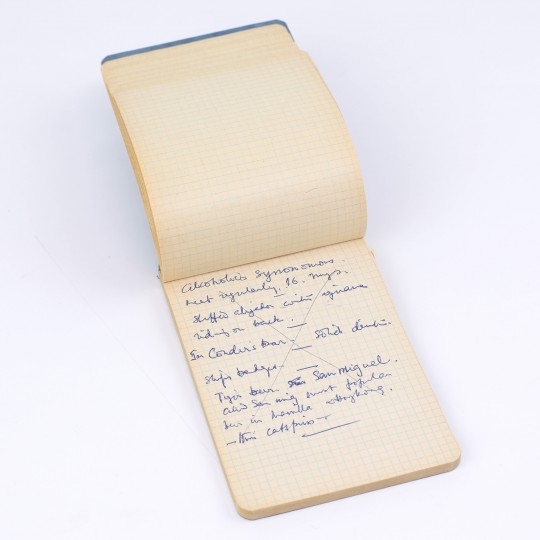 Alcoholics Synonomous.
meet regularly. 16. mys.
stuffed alligator with iguana
riding on back.
In Corders bar. Solid
Ships badges
Tiger beer. San miguel.
also San mig most popular
beer in manila & Hongkong.
cats piss